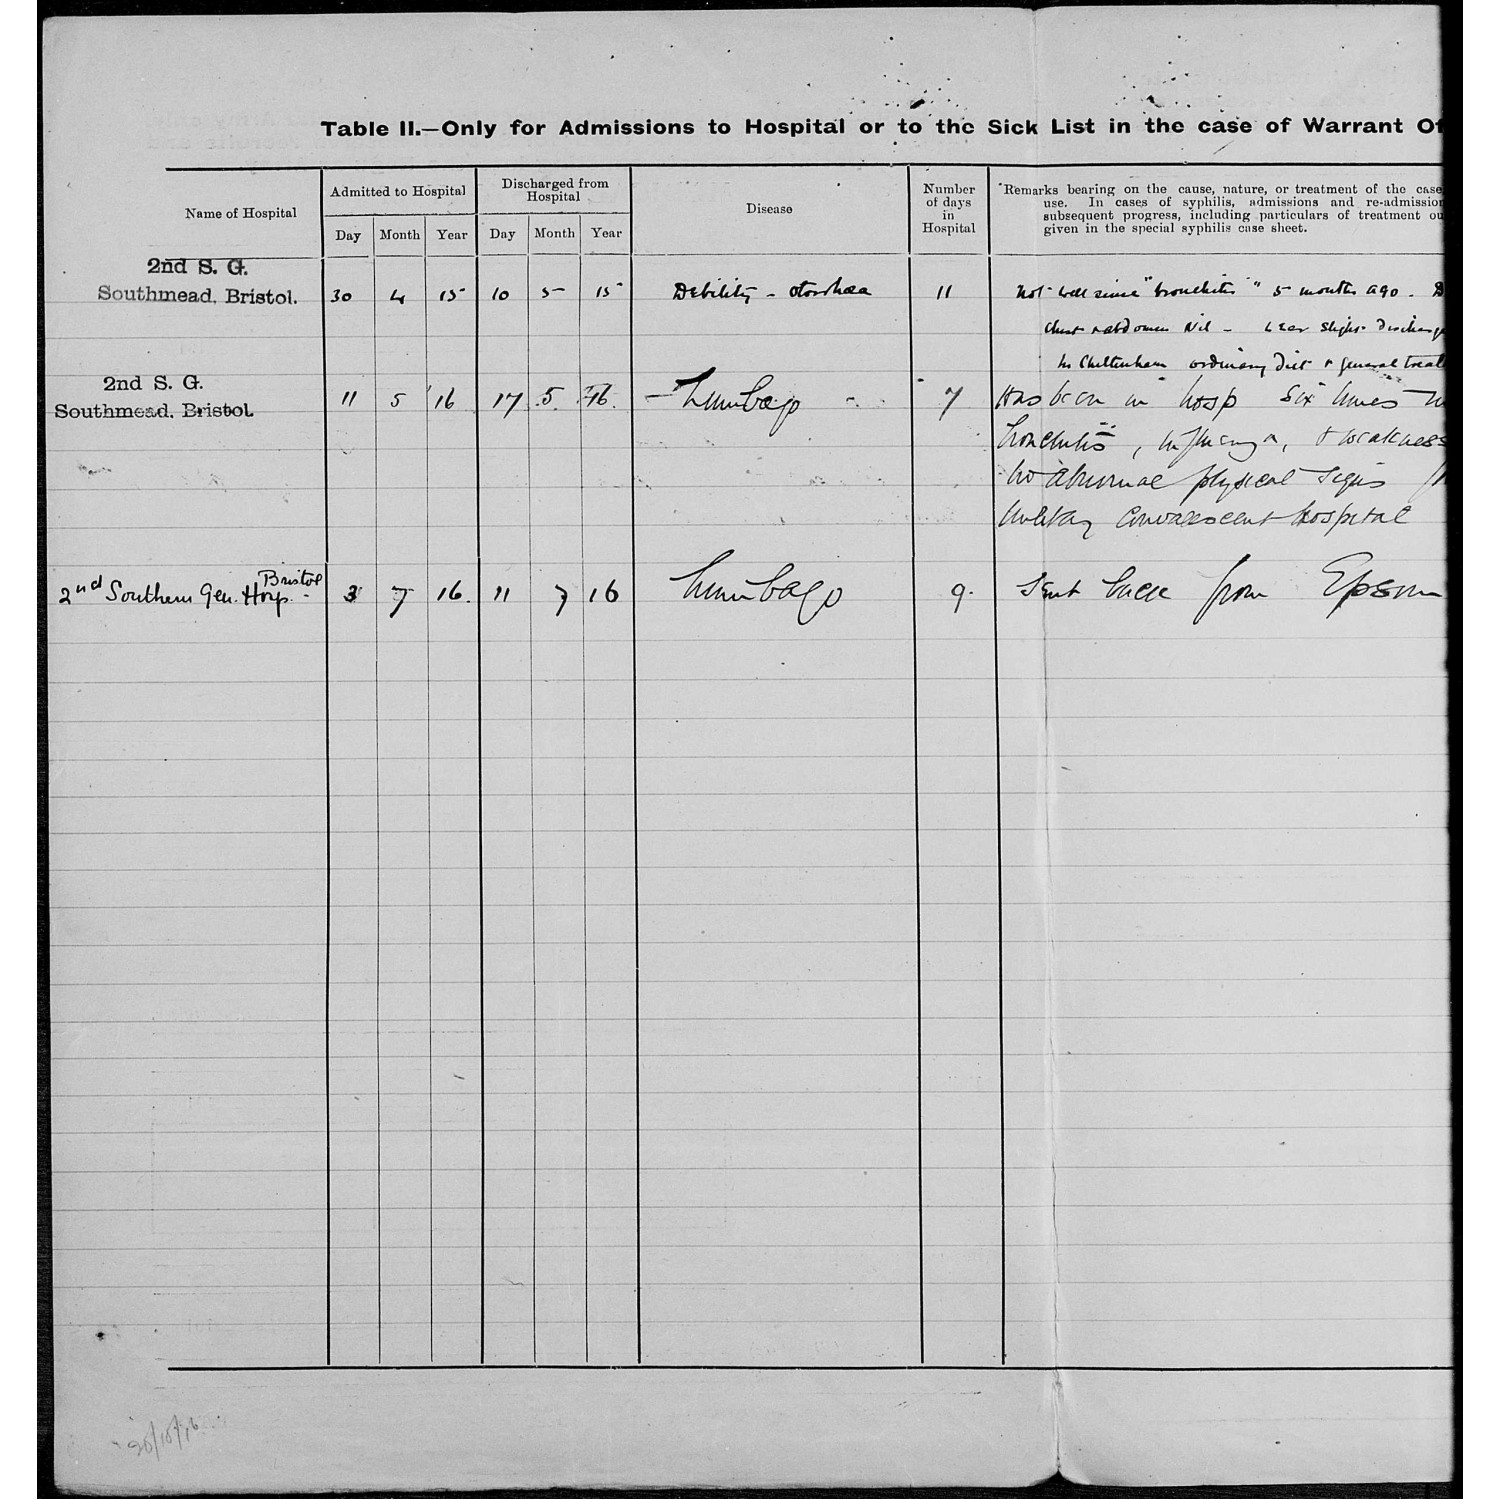 Table II.—Only for Admissions to Hospital or to the Sick List in the case of Warrant Of
Name of Hospital
Admitted to Hospital
Discharged from
Hospital
Disease
Number
of days
in
Hospital
Remarks bearing on the cause, nature, or treatment of the case
use. In cases of syphilis, admissions and re-admission
subsequent progress, including particulars of treatment ou
given in the special syphilis case sheet.
Day Month Year Day Month Year
2nd S. G.
Southmead, Bristol. 30 4 15 10 5 15 Debility - otorrhoea 11 Not well since "bronchitis" 5 months ago. D
Chest & abdomen Nil - ear slight discharge
to Cheltenham ordinary Diet & general treat
2nd S. G.
Southmead, Bristol. 11 5 16 17 5 16. - Lumbago - 7 Has been in hosp Six times
bronchitis, influenza, & weakness
No abnormal physical signs
Military Convalescent Hospital
2nd Southern Gen. Hosp. Bristol 3 7 16. 11 7 16 Lumbago 9. Sent back from Epsom
26/10/16